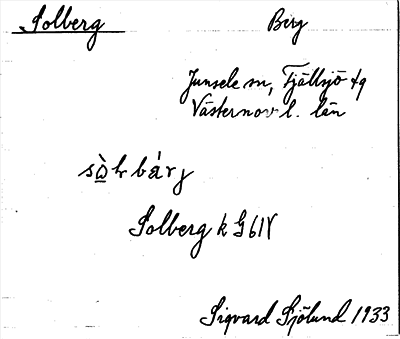 Solberg By
Junsele sn, Fjällsjö tg
Västernorrl. län
Solberg k G61V
Sigvard Sjölund 1933